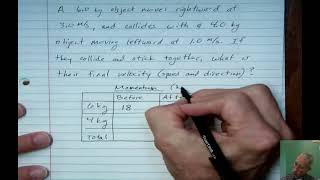 A 6.0 kg object moves rightward at
3.0 m/s, and collides with a 4.0 kg
object moving leftward at 1.0 m/s. If
they collide and stick together, what is
their final velocity (speed and direction)?
Momentum (k
Before Aft
6 kg 18
4 kg
Total